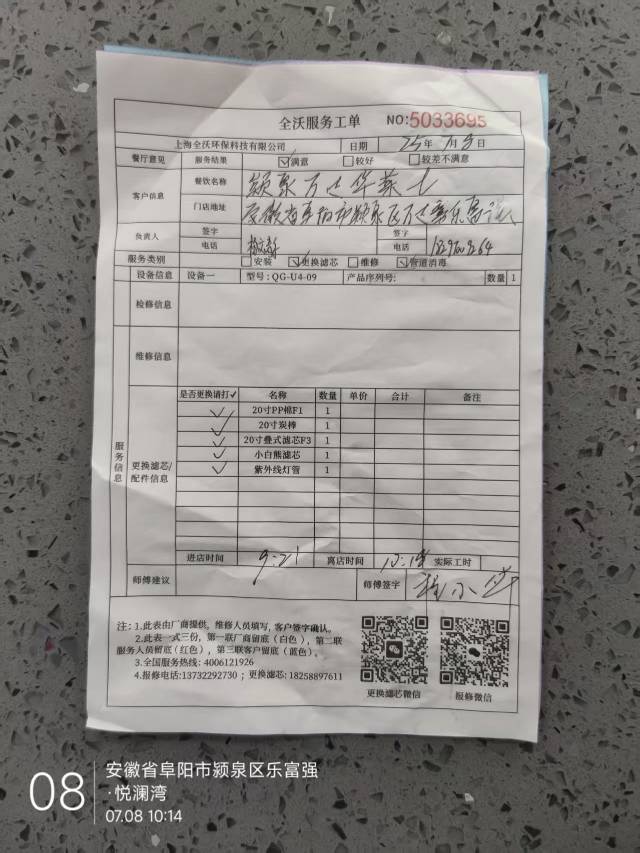 全沃服务工单 NO:5033695
上海全沃环保科技有限公司 日期 25年 7月8日
餐厅意见 服务结果 ☑满意 □较好 □较差不满意
客户信息 餐饮名称 颍泉万达华莱士
门店地址 安徽省阜阳市颍泉区万达
负责人 签字 签字
电话 电话
服务类别 □安装 ☑更换滤芯 □维修 ☑管道消毒
设备信息 设备一 型号:QG-U4-09 产品序列号: 数量 1
检修信息
维修信息
服务信息
更换滤芯/配件信息
是否更换请打✓ 名称 数量 单价 合计 备注
✓ 20寸PP棉F1 1
✓ 20寸炭棒 1
✓ 20寸叠式滤芯F3 1
✓ 小白熊滤芯 1
✓ 紫外线灯管 1
进店时间 9:21 离店时间 实际工时
师傅建议 师傅签字
注: 1.此表由厂商提供, 维修人员填写, 客户签字确认。
2.此表一式三份, 第一联厂商留底(白色), 第二联
服务人员留底(红色), 第三联客户留底(蓝色)。
3.全国服务热线: 4006121926
4.报修电话:13732292730 ; 更换滤芯:18258897611
更换滤芯微信 报修微信
08
安徽省阜阳市颍泉区乐富强
·悦澜湾
07.08 10:14